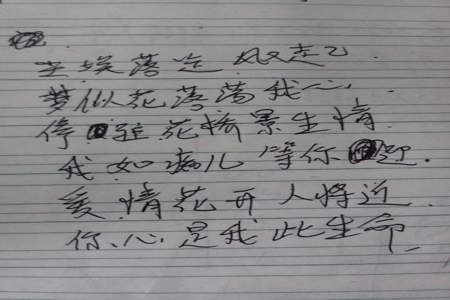 尘埃落定 风又起
梦似花落荡我心
停驻花桥景生情
我如痴儿等你
爱情花开人将近
你心是我此生命